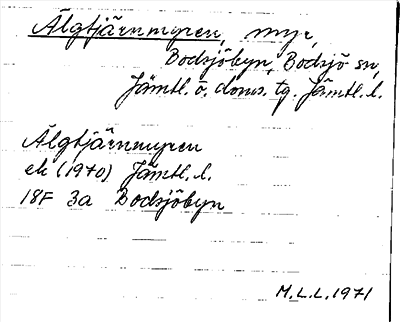 Älgtjärnmyren, myr,
Bodsjöbyn, Bodsjö sn,
Jämtl. ö. doms. tg. Jämtl. l.
Älgtjärnmyren
ek (1970) Jämtl. l.
18F 3a Bodsjöbyn
M.L.L. 1971